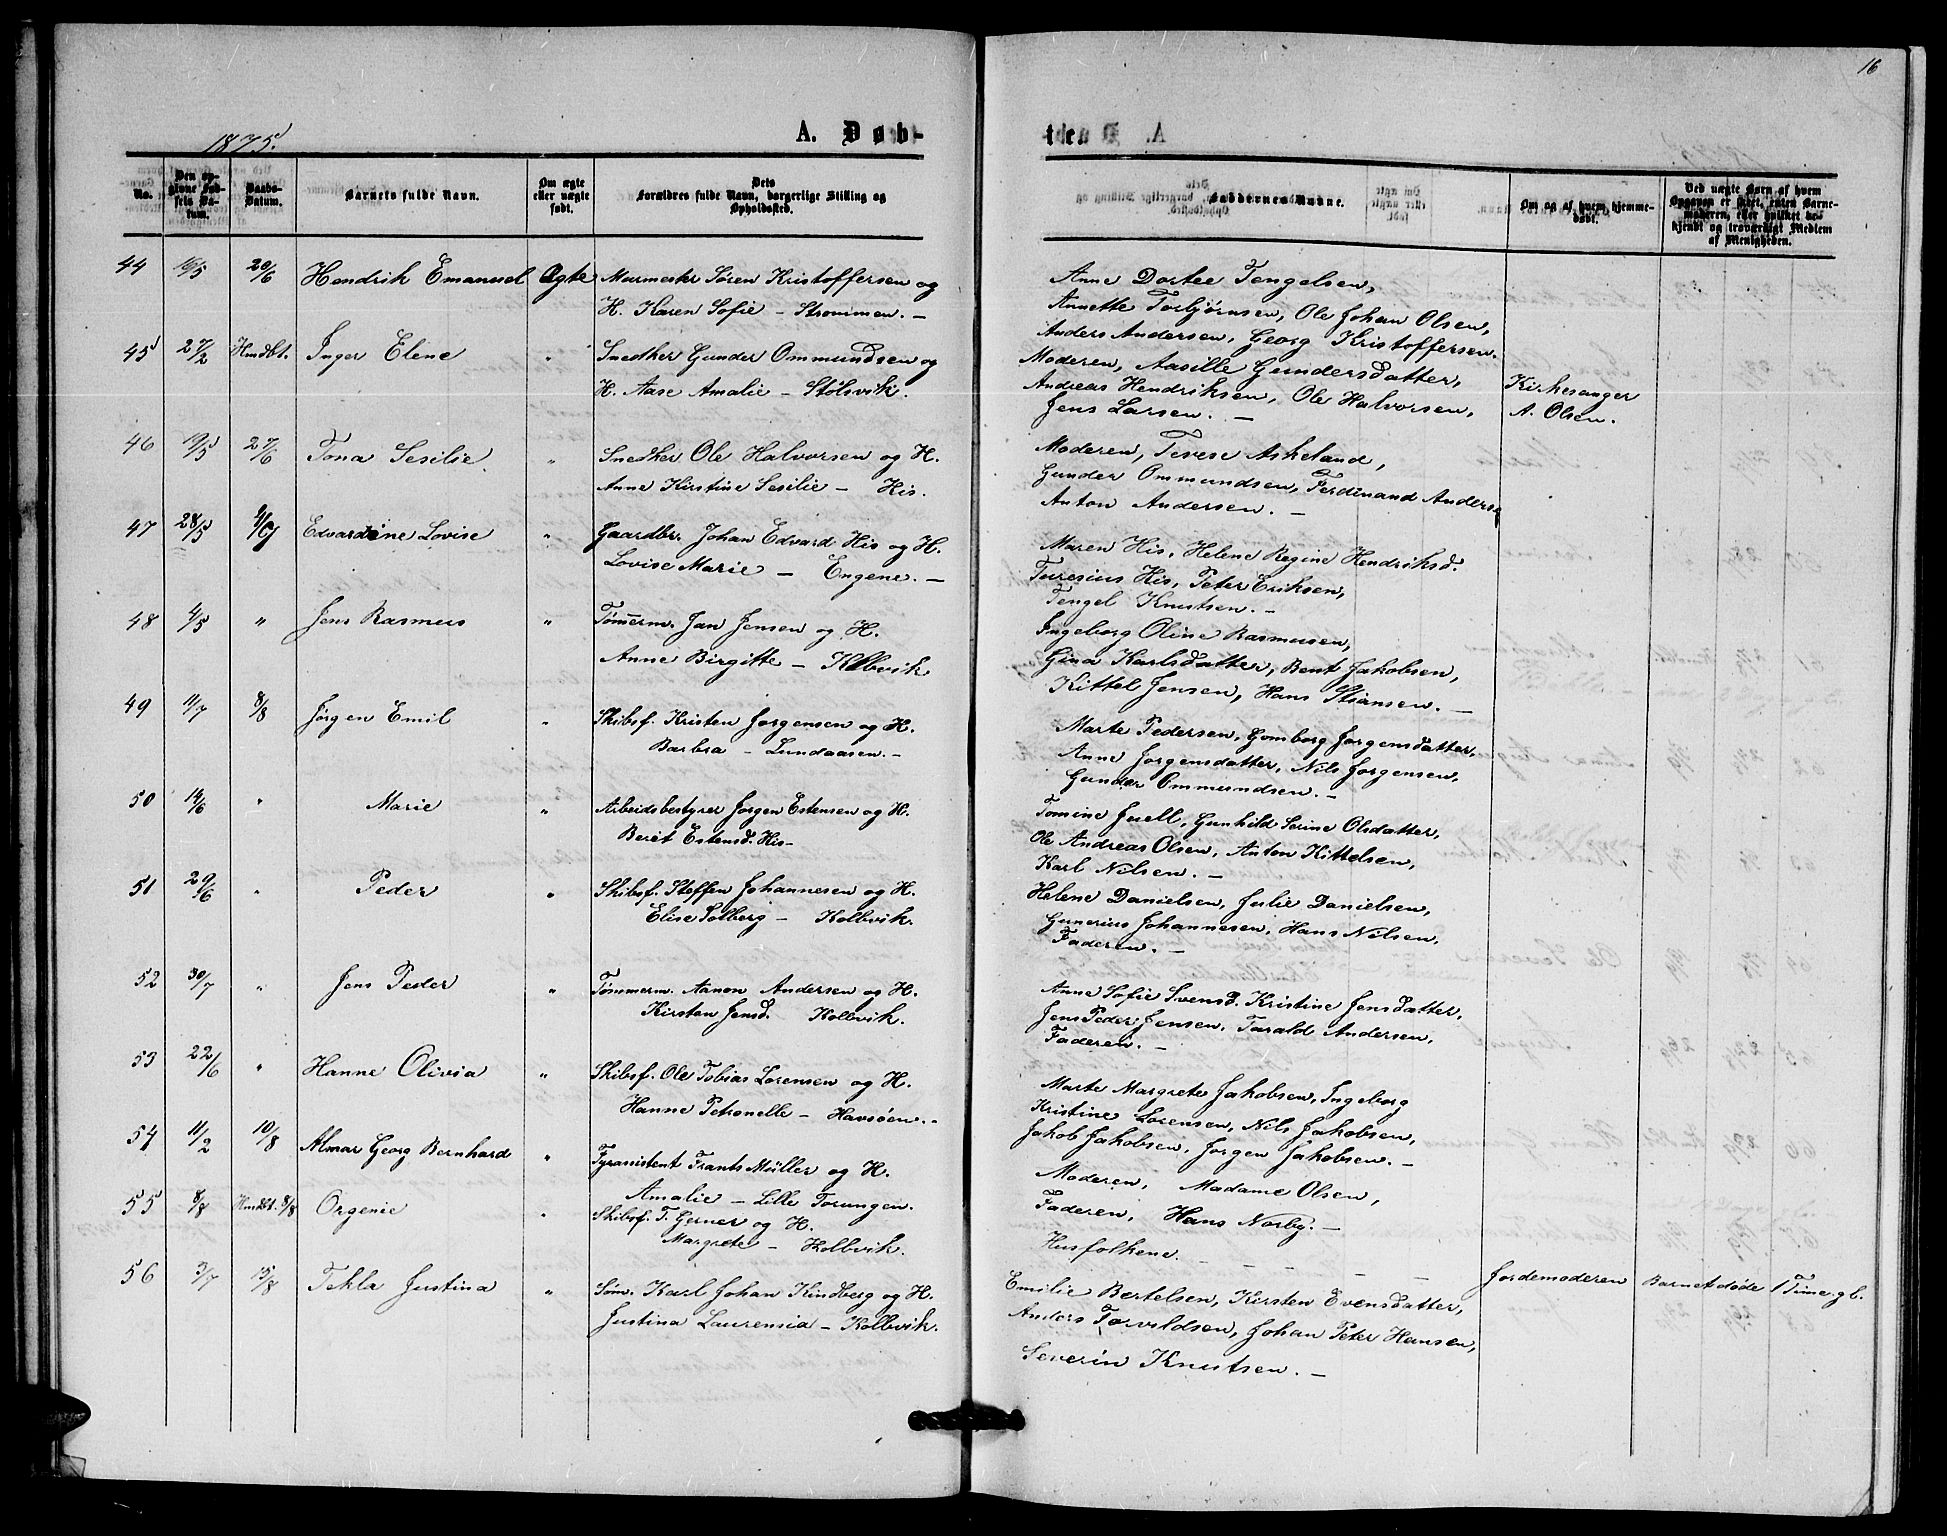 16
1875.
A. Døb-
te.
No.
Den op-
givne Fød-
sels Da-
tum.
Daabs-
Datum.
Barnets fulde Navn.
Om ægte
eller uægte
født.
Dets
Forældres fulde Navn, borgerlige Stilling og
Opholdssted.
Faddernes Navne.
Om og af hvem hjemme-
døbt.
Ved uægte Børn af hvem
Opgaven er skeet, enten Barne-
moderen, eller hvilket be-
kjendt og troværdigt Medlem
af Menigheden.
44 16/5 20/6 Hendrik Emanuel Ægte Murmester Søren Kristoffersen og
H. Karen Sofie – Strømmen. –
Anne Dortee Tengelsen,
Annette Torbjørnsen, Ole Johan Olsen,
Anders Andersen, Georg Kristoffersen.
45 27/2 Hmdbt. Inger Elene " Snedker Gunder Ommundsen og
H. Aase Amalie – Stølsvik.
Moderen, Aasille Gundersdatter,
Andreas Hendriksen, Ole Halvorsen,
Jens Larsen. –
Kirkesanger
A. Olsen.
46 19/5 27/6 Tona Sesilie. " Snedker Ole Halvorsen og H.
Anne Kirstine Sesilie – His.
Moderen, Terese Askeland,
Gunder Ommundsen, Ferdinand Anders
Anton Andersen. –
47 28/5 Edvardine Lovise " Gaardbr. Johan Edvard His og H.
Lovise Marie – Engene. –
Maren His, Helene Regine Hendriksd.
Turesius His, Peter Eriksen,
Tengel Knutsen. –
48 4/5 " Jens Rasmus " Tømmerm. Jan Jensen og H.
Anne Birgitte – Kolbvik
Ingeborg Oline Rasmusen,
Gina Karlsdatter, Bent Jakobsen,
Kittel Jensen, Hans Stiansen. –
49 11/7 8/8 Jørgen Emil " Skibsf. Kristen Jørgensen og H.
Barbra – Lundaasen. –
Marte Pedersen, Gomborg Jørgensdatter,
Anne Jørgensdatter, Nils Jørgensen,
Gunder Ommundsen. –
50 14/6 " Marie " Arbeidsbestyrer Jørgen Estensen og H.
Beret Estensd. His –
Tomine Juell, Gunhild Serine Olsdatter,
Ole Andreas Olsen, Anton Kittelsen,
Karl Nilsen. –
51 29/6 " Peder " Skibsf. Steffen Johannesen og H.
Elise Solberg – Kolbvik.
Helene Danielsen, Julie Danielsen,
Gunerius Johannesen, Hans Nilsen,
Faderen. –
52 30/7 " Jens Peder " Tømmerm. Aanon Andersen og H.
Kirsten Jensd. Kolbvik.
Anne Sofie Svensd. Kristine Jensdatter,
Jens Peder Jensen, Tarald Andersen,
Faderen. –
53 22/6 " Hanne Olivia " Skibsf. Ole Tobias Lorensen og H.
Hanne Petronelle – Havsøen. –
Marte Margrete Jakobsen, Ingeborg
Kristine Lorensen, Nils Jakobsen,
Jakob Jakobsen, Jørgen Jakobsen. –
54 11/2 10/8 Almar Georg Bernhard " Fyrassistent Frants Müller og H.
Amalie – Lille Torungen.
Moderen, Madame Olsen,
Faderen, Hans Norby. –
55 8/8 Hmdbt. 8/8 Orgenie " Skibsf. T. Gerner og H.
Margrete – Kolbvik.
Husfolkene. – – – – –
Jordemoderen Barnet døde 1 Time gl.
56 3/7 15/8 Tekla Justina " Søm. Karl Johan Kindberg og H.
Justina Laurensia – Kolbvik.
Emilie Bertelsen, Kirsten Evensdatter,
Anders Torvildsen, Johan Peter Hansen,
Severin Knutsen. –